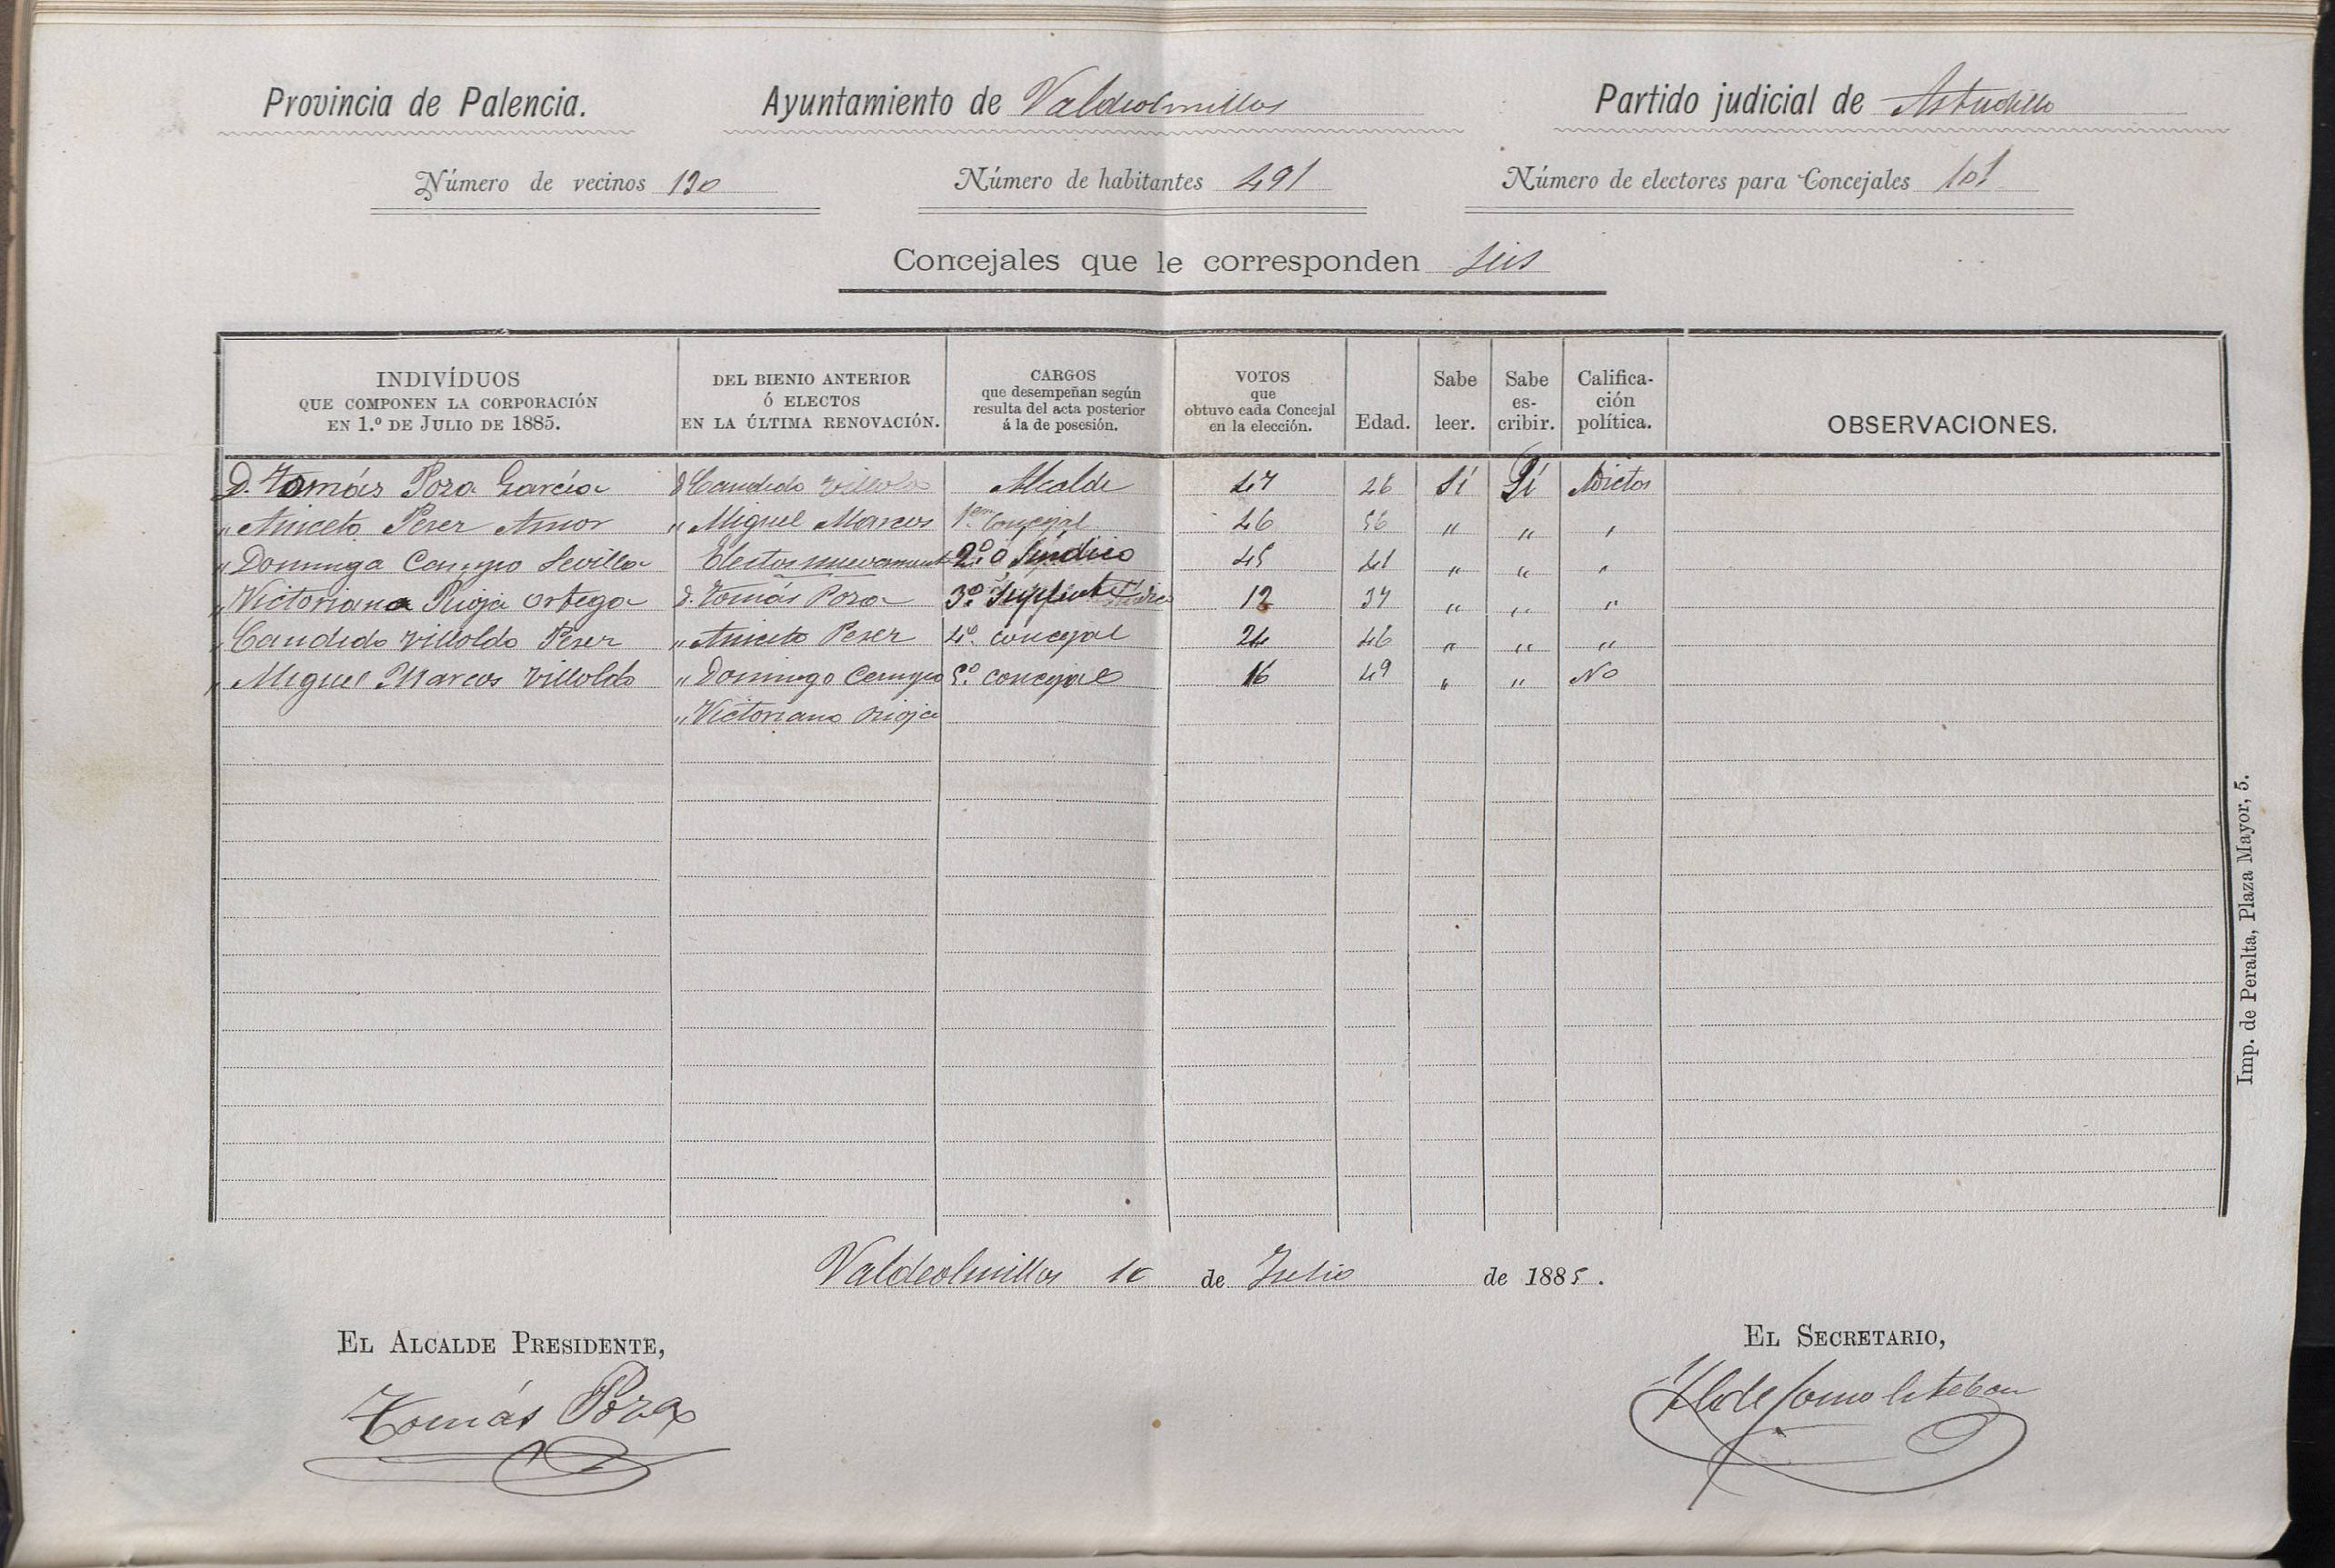 Provincia de Palencia. Ayuntamiento de Valdeolmillos Partido judicial de Astudillo
Número de vecinos 130 Número de habitantes 491 Número de electores para Concejales 101
Concejales que le corresponden seis
INDIVÍDUOS QUE COMPONEN LA CORPORACIÓN EN 1.º DE JULIO DE 1885. DEL BIENIO ANTERIOR Ó ELECTOS EN LA ÚLTIMA RENOVACIÓN. CARGOS que desempeñan según resulta del acta posterior á la de posesión. VOTOS que obtuvo cada Concejal en la elección. Edad. Sabe leer. Sabe es-cribir. Califica-ción política. OBSERVACIONES.
D. Tomás Poza Garcia D Candido Villoldo Alcalde 47 26 Sí Sí Adictos
" Aniceto Perez Amor " Miguel Marcos 1er Concejal 46 56 " " "
" Domingo Campo Sevilla Electos nuevamente 2º ó Síndico 45 41 " " "
" Victoriano Rioja Ortega D. Tomás Poza 3º Suplente 12 37 " " "
" Candido Villoldo Perez " Aniceto Perez 4º. concejal 24 46 " " "
" Miguel Marcos Villoldo " Domingo Campo 5º. concejal 16 49 " " No
" Victoriano Rioja
Imp. de Peralta, Plaza Mayor, 5.
Valdeolmillos 10 de Julio de 1885.
EL ALCALDE PRESIDENTE, EL SECRETARIO,
Tomás Poza Ildefonso Esteban